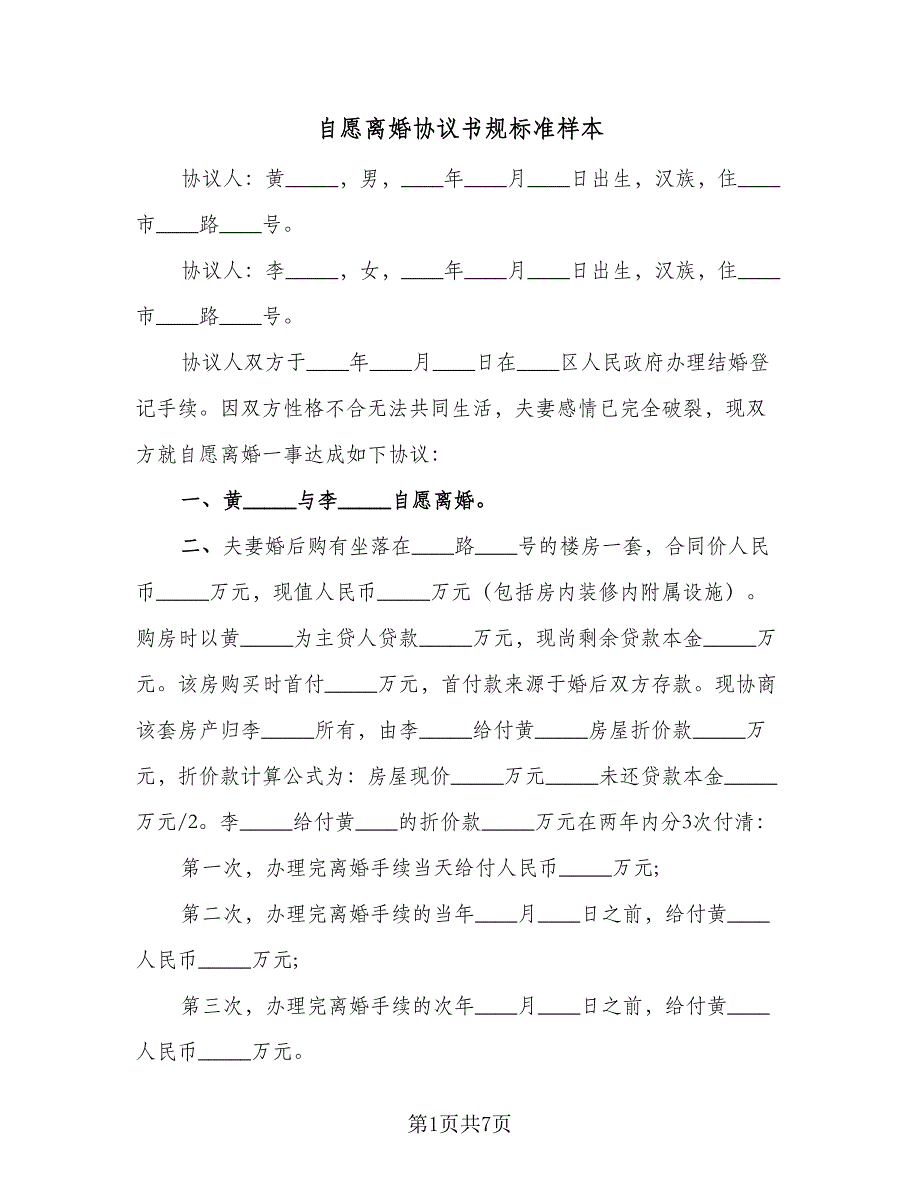 自愿离婚协议书规标准样本
协议人：黄_____，男，____年____月____日出生，汉族，住____
市____路____号。
协议人：李_____，女，____年____月____日出生，汉族，住____
市____路____号。
协议人双方于____年____月____日在____区人民政府办理结婚登
记手续。因双方性格不合无法共同生活，夫妻感情已完全破裂，现双
方就自愿离婚一事达成如下协议：
一、黄_____与李_____自愿离婚。
二、夫妻婚后购有坐落在____路____号的楼房一套，合同价人民
币_____万元，现值人民币_____万元（包括房内装修内附属设施）。
购房时以黄_____为主贷人贷款_____万元，现尚剩余贷款本金_____万
元。该房购买时首付_____万元，首付款来源于婚后双方存款。现协商
该套房产归李_____所有，由李_____给付黄_____房屋折价款_____万
元，折价款计算公式为：房屋现价_____万元_____未还贷款本金_____
万元/2。李_____给付黄____的折价款_____万元在两年内分3次付清：
第一次，办理完离婚手续当天给付人民币_____万元;
第二次，办理完离婚手续的当年____月____日之前，给付黄____
人民币_____万元;
第三次，办理完离婚手续的次年____月____日之前，给付黄____
人民币_____万元。
第1页共7页